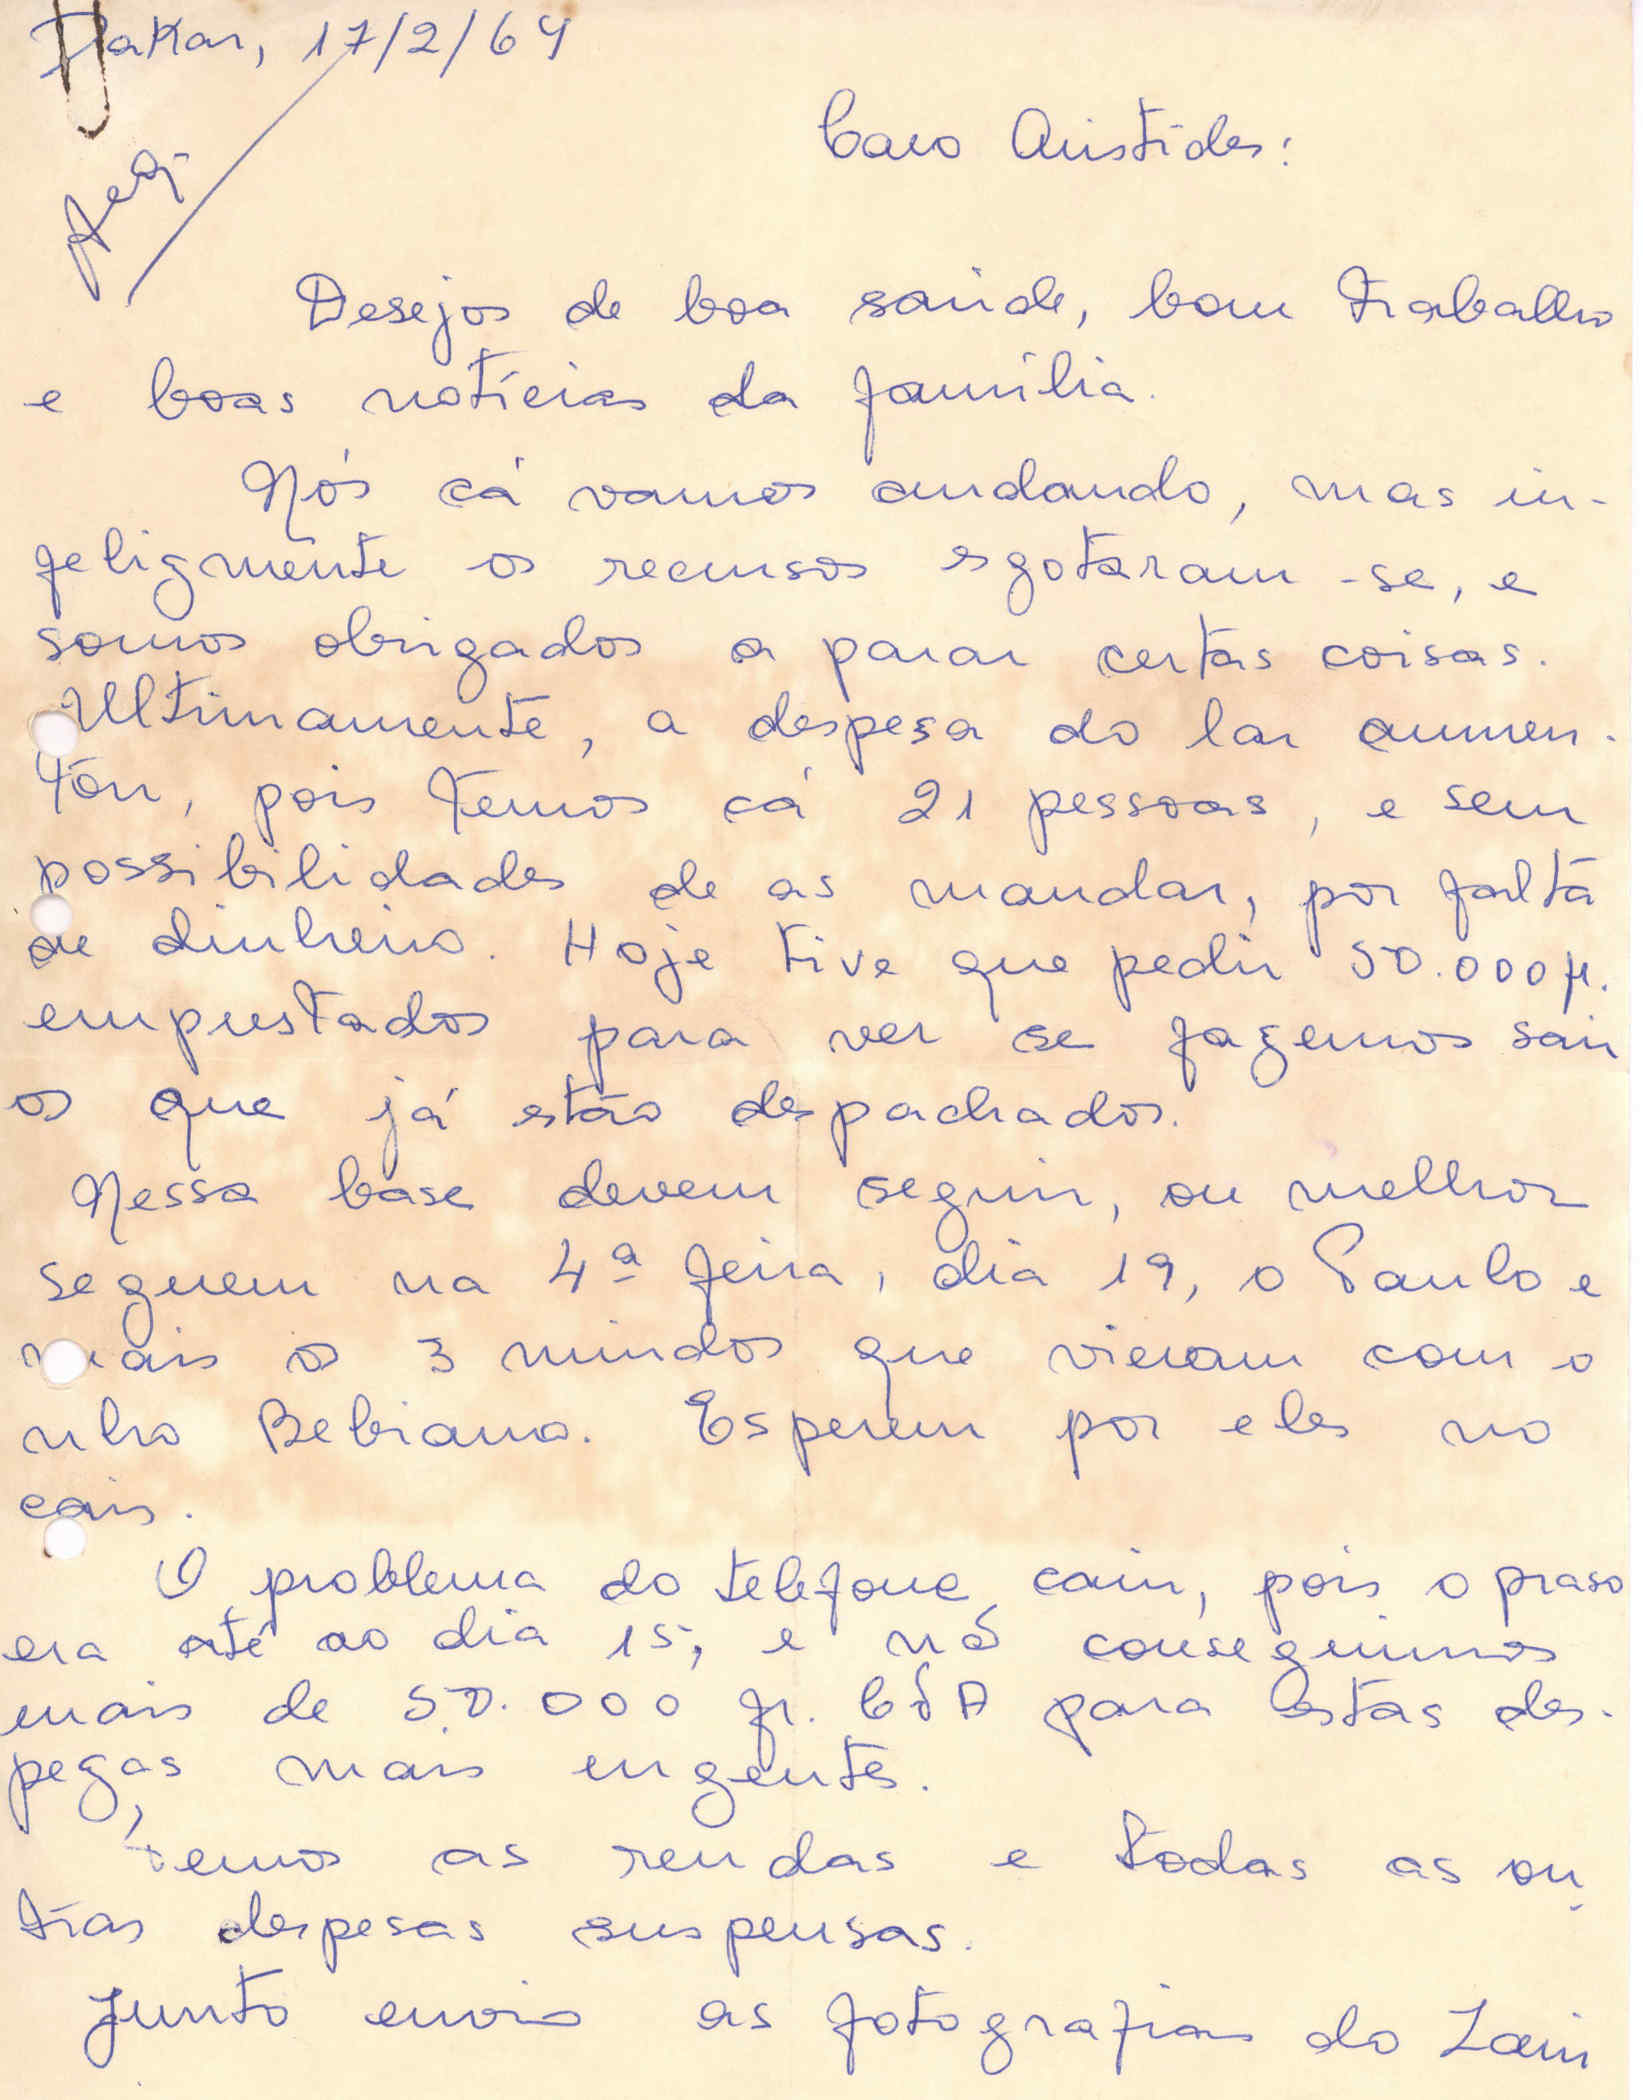 Dakar, 17/2/64
Caro Aristides:
Desejos de boa saúde, bom trabalho
e boas notícias da família.
Nós cá vamos andando, mas in-
felizmente os recursos esgotaram-se, e
somos obrigados a parar certas coisas.
Ultimamente, a despesa do lar aumen-
tou, pois temos cá 21 pessoas, e sem
possibilidades de as mandar, por falta
de dinheiro. Hoje tive que pedir 50.000 fr.
emprestados para ver se fazemos sair
os que já estão despachados.
Nessa base devem seguir, ou melhor
seguem na 4ª feira, dia 19, o Paulo e
mais os 3 miúdos que vieram com o
nho Bebiano. Esperem por eles no
cais.
O problema do telefone caiu, pois o praso
era até ao dia 15, e nó conseguimos
mais de 50.000 fr. CFA para estas des-
pezas mais urgentes.
Temos as rendas e todas as ou-
tras despesas suspensas.
Junto envio as fotografias do Zain